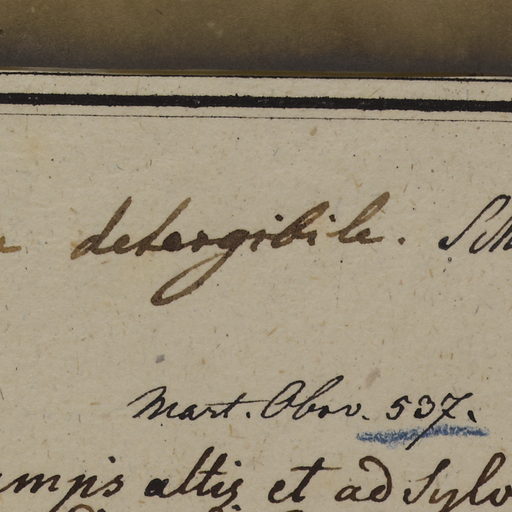 detergibile. Sch
Mart. Obsv. 537.
ampis altis et ad Sylv